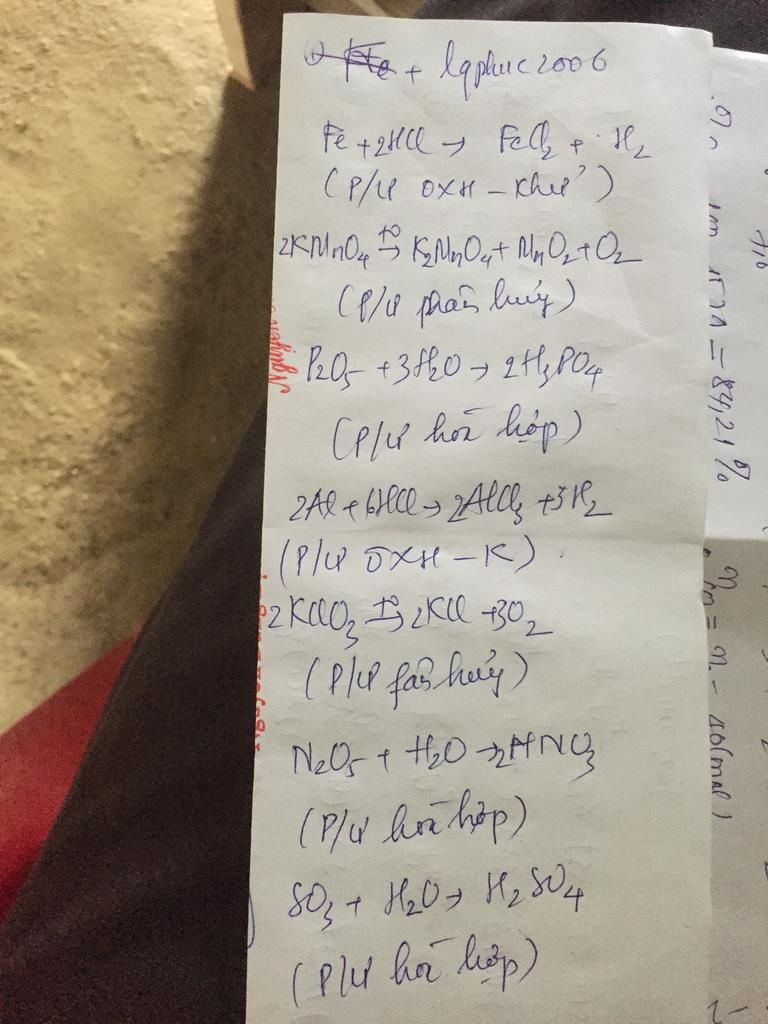 + lqphuc2006
Fe + 2HCl → FeCl₂ + H₂
(P/ứ OXH - Khử)
2KMnO₄ t⁰→ K₂MnO₄ + MnO₂ + O₂
(P/ứ phân huỷ)
P₂O₅ + 3H₂O → 2H₃PO₄
(P/ứ hoá hợp)
2Al + 6HCl → 2AlCl₃ + 3H₂
(P/ứ OXH - K)
2KClO₃ t⁰→ 2KCl + 3O₂
(P/ứ fân huỷ)
N₂O₅ + H₂O → 2HNO₃
(P/ứ hoá hợp)
SO₃ + H₂O → H₂SO₄
(P/ứ hoá hợp)
= 84,21%